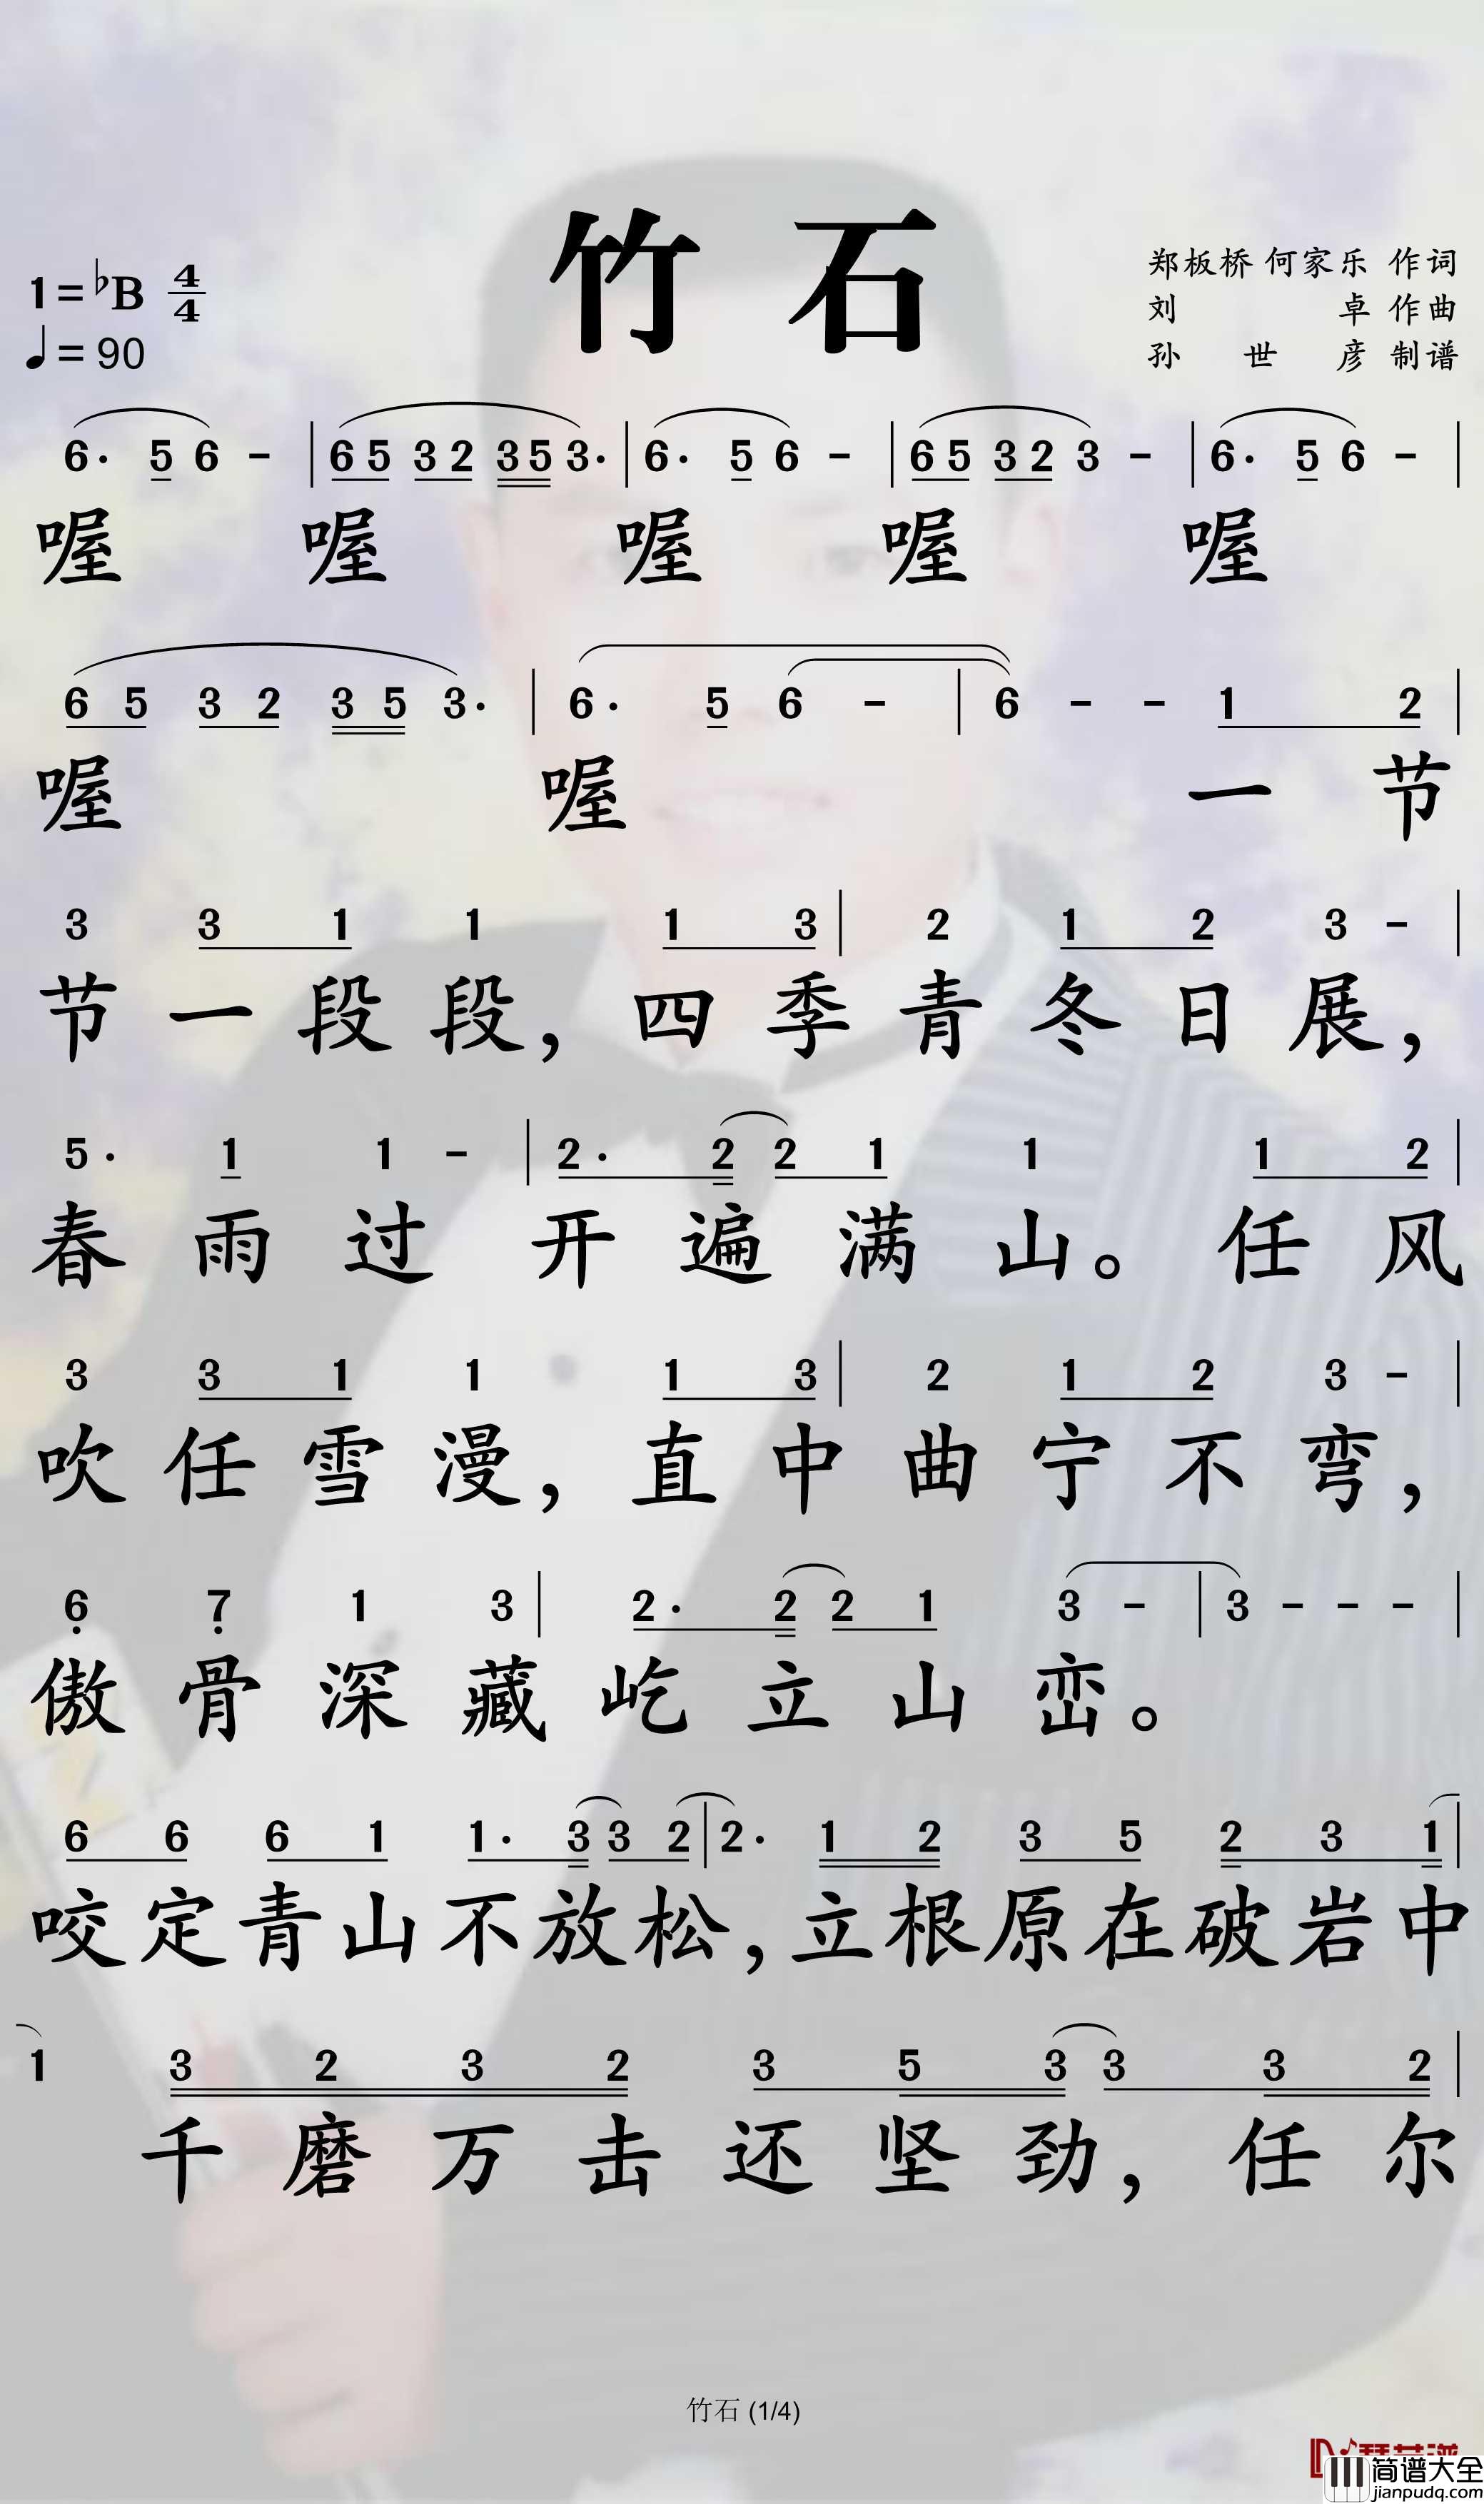 竹石
1=♭B 4/4
♩=90
郑板桥 何家乐 作词
刘卓 作曲
孙世彦 制谱
6· 5 6 - | 6 5 3 2 3 5 3· | 6· 5 6 - | 6 5 3 2 3 - | 6· 5 6 - |
喔 喔 喔 喔 喔
6 5 3 2 3 5 3· | 6· 5 6 - | 6 - - 1 2 |
喔 喔 一 节
3 3 1 1 1 3 | 2 1 2 3 - |
节 一 段 段， 四 季 青 冬 日 展，
5· 1 1 - | 2· 2 2 1 1 1 2 |
春 雨 过 开 遍 满 山。 任 风
3 3 1 1 1 3 | 2 1 2 3 - |
吹 任 雪 漫， 直 中 曲 宁 不 弯，
6̣ 7̣ 1 3 | 2· 2 2 1 3 - | 3 - - - |
傲 骨 深 藏 屹 立 山 峦。
6 6 6 1 1· 3 3 2 | 2· 1 2 3 5 2 3 1 |
咬 定 青 山 不 放 松， 立 根 原 在 破 岩 中
1 3 2 3 2 3 5 3 3 3 2 |
千 磨 万 击 还 坚 劲， 任 尔
竹石 (1/4)
简谱大全
jianpudq.com